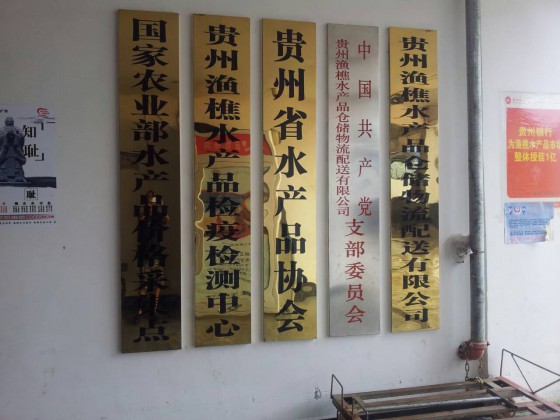 国家农业部水产品价格采集点
贵州渔樵水产品检疫检测中心
贵州省水产品协会
中国共产党
贵州渔樵水产品仓储物流配送有限公司
支部委员会
贵州渔樵水产品仓储物流配送有限公司
知
耻
耻
贵州银行
为渔樵水产品市场
整体授信1亿